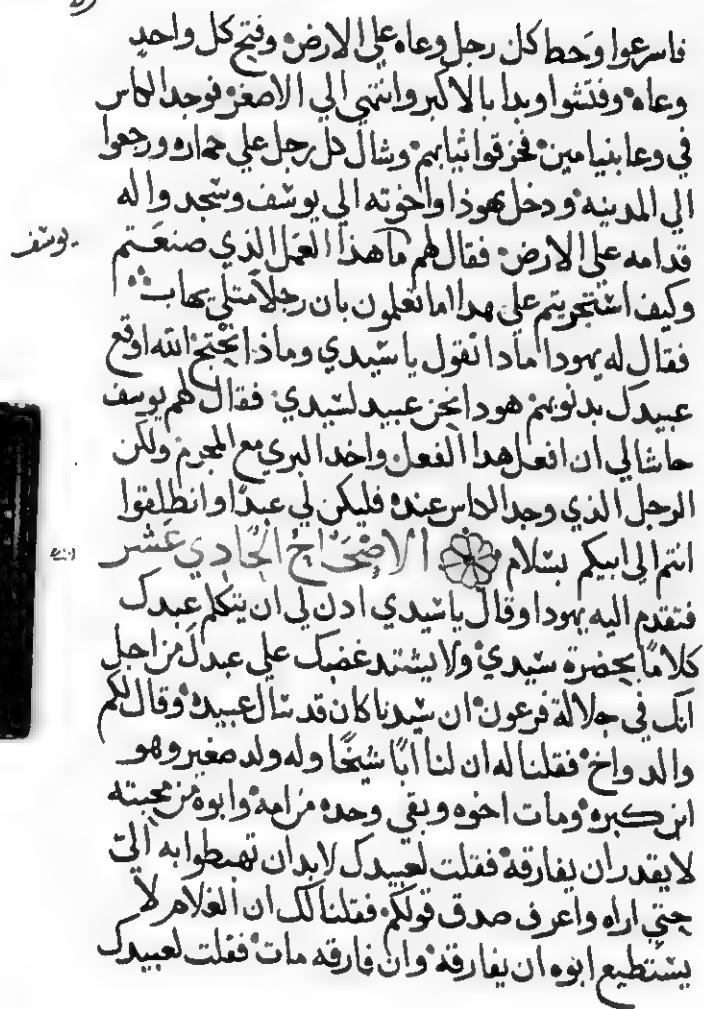 فاسرعوا وحط كل رجل وعاه علي الارض وفتح كل واحد
وعاه وفتشوا وبدا بالاكبر وانتهي الي الاصغر فوجد الكاس
في وعا بنيامين فخرقوا ثيابهم وشال كل رجل علي حماره ورجعوا
الي المدينه ودخل يهوذا واخوته الي يوسف وسجدوا له
يوسف
قدامه علي الارض فقال لهم ما هذا العمل الذي صنعتم
وكيف استجريتم علي هدا اما تعلمون بان رجلا متلي يهاب
فقال له يهودا مادا نقول يا سيدي وماذا نحتج الله اوقع
عبيدك بدنوبهم هودا نحن عبيد لسيدي فقال لهم يوسف
حاشا لي ان افعل هدا الفعل واخد البري مع المجرم ولكن
الرجل الذي وجد الكاس عنده فليكن لي عبدا وانطلقوا
انتم الي ابيكم بسلام الاصحاح الحادي عشر
فتقدم اليه يهودا وقال يا سيدي ادن لي ان يتكلم عبدك
كلاما بحضرة سيدي ولا يشتد غضبك علي عبدك من اجل
انك في جلالة فرعون ان سيدنا كان قد سال عبيده وقال لكم
والد واخ فقلنا له ان لنا ابا شيخا وله ولد صغير وهو
ابن كبره ومات اخوه وبقي وحده من امه وابوه من محبته
لا يقدر ان يفارقه فقلت لعبيدك لابد ان تهبطوا به الي
حتي اراه واعرف صدق قولكم فقلنا لك ان الغلام لا
يستطيع ابوه ان يفارقه وان فارقه مات فقلت لعبيدك